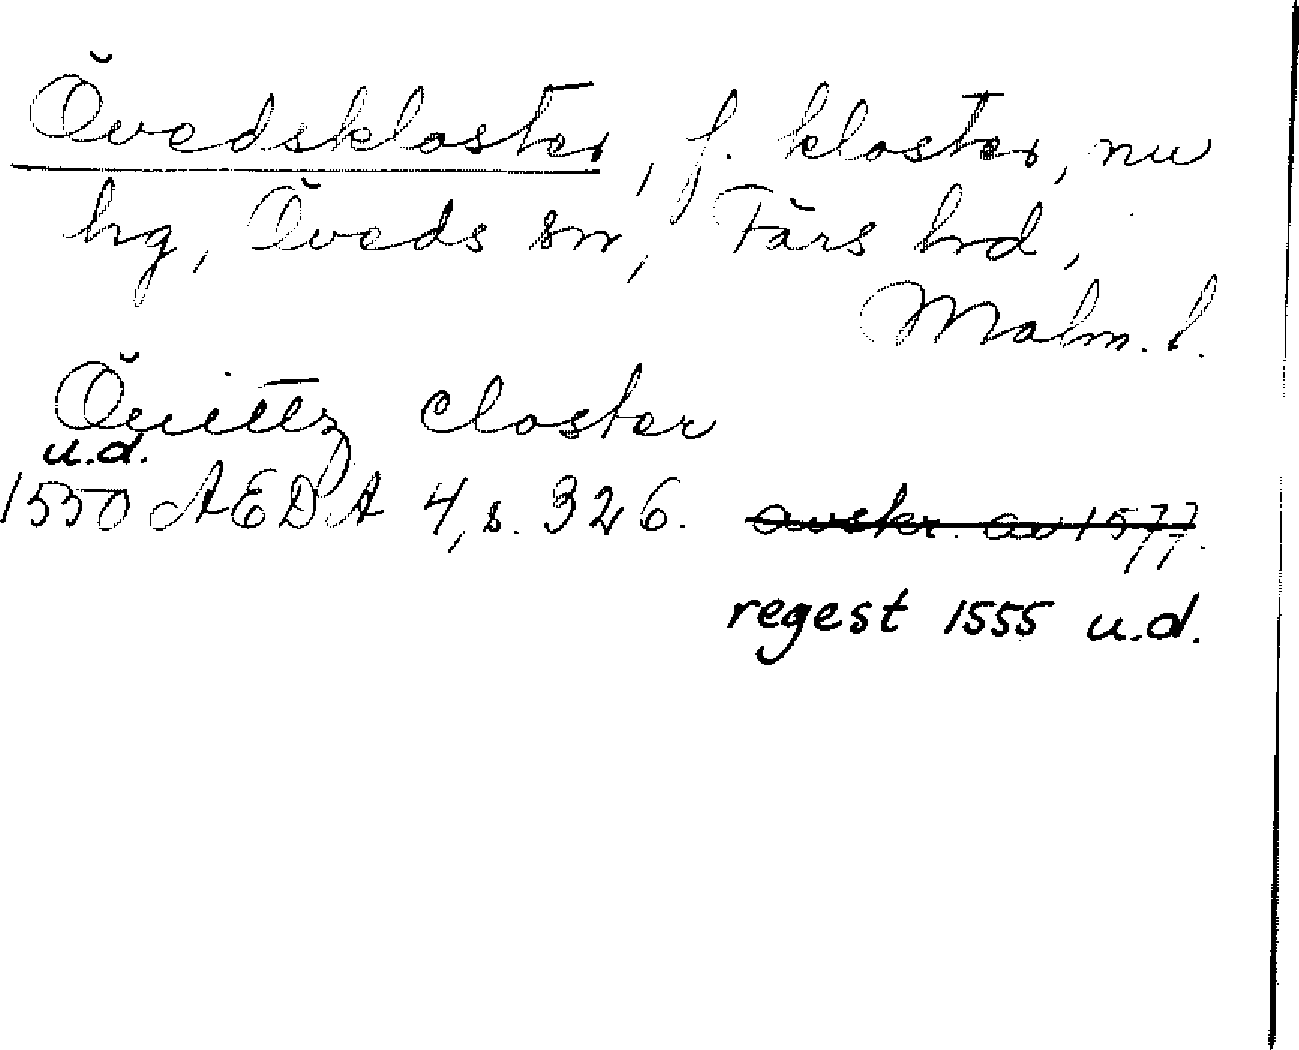 Övedskloster, f. kloster, nu
hg, Öveds sn, Färs hrd,
Malm. l.
Öuittz closter
u.d.
1550 ÆDA 4, s. 326. avskr. av 1577.
regest 1555 u.d.